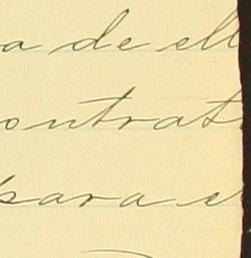 a de ell
ontrat
para e